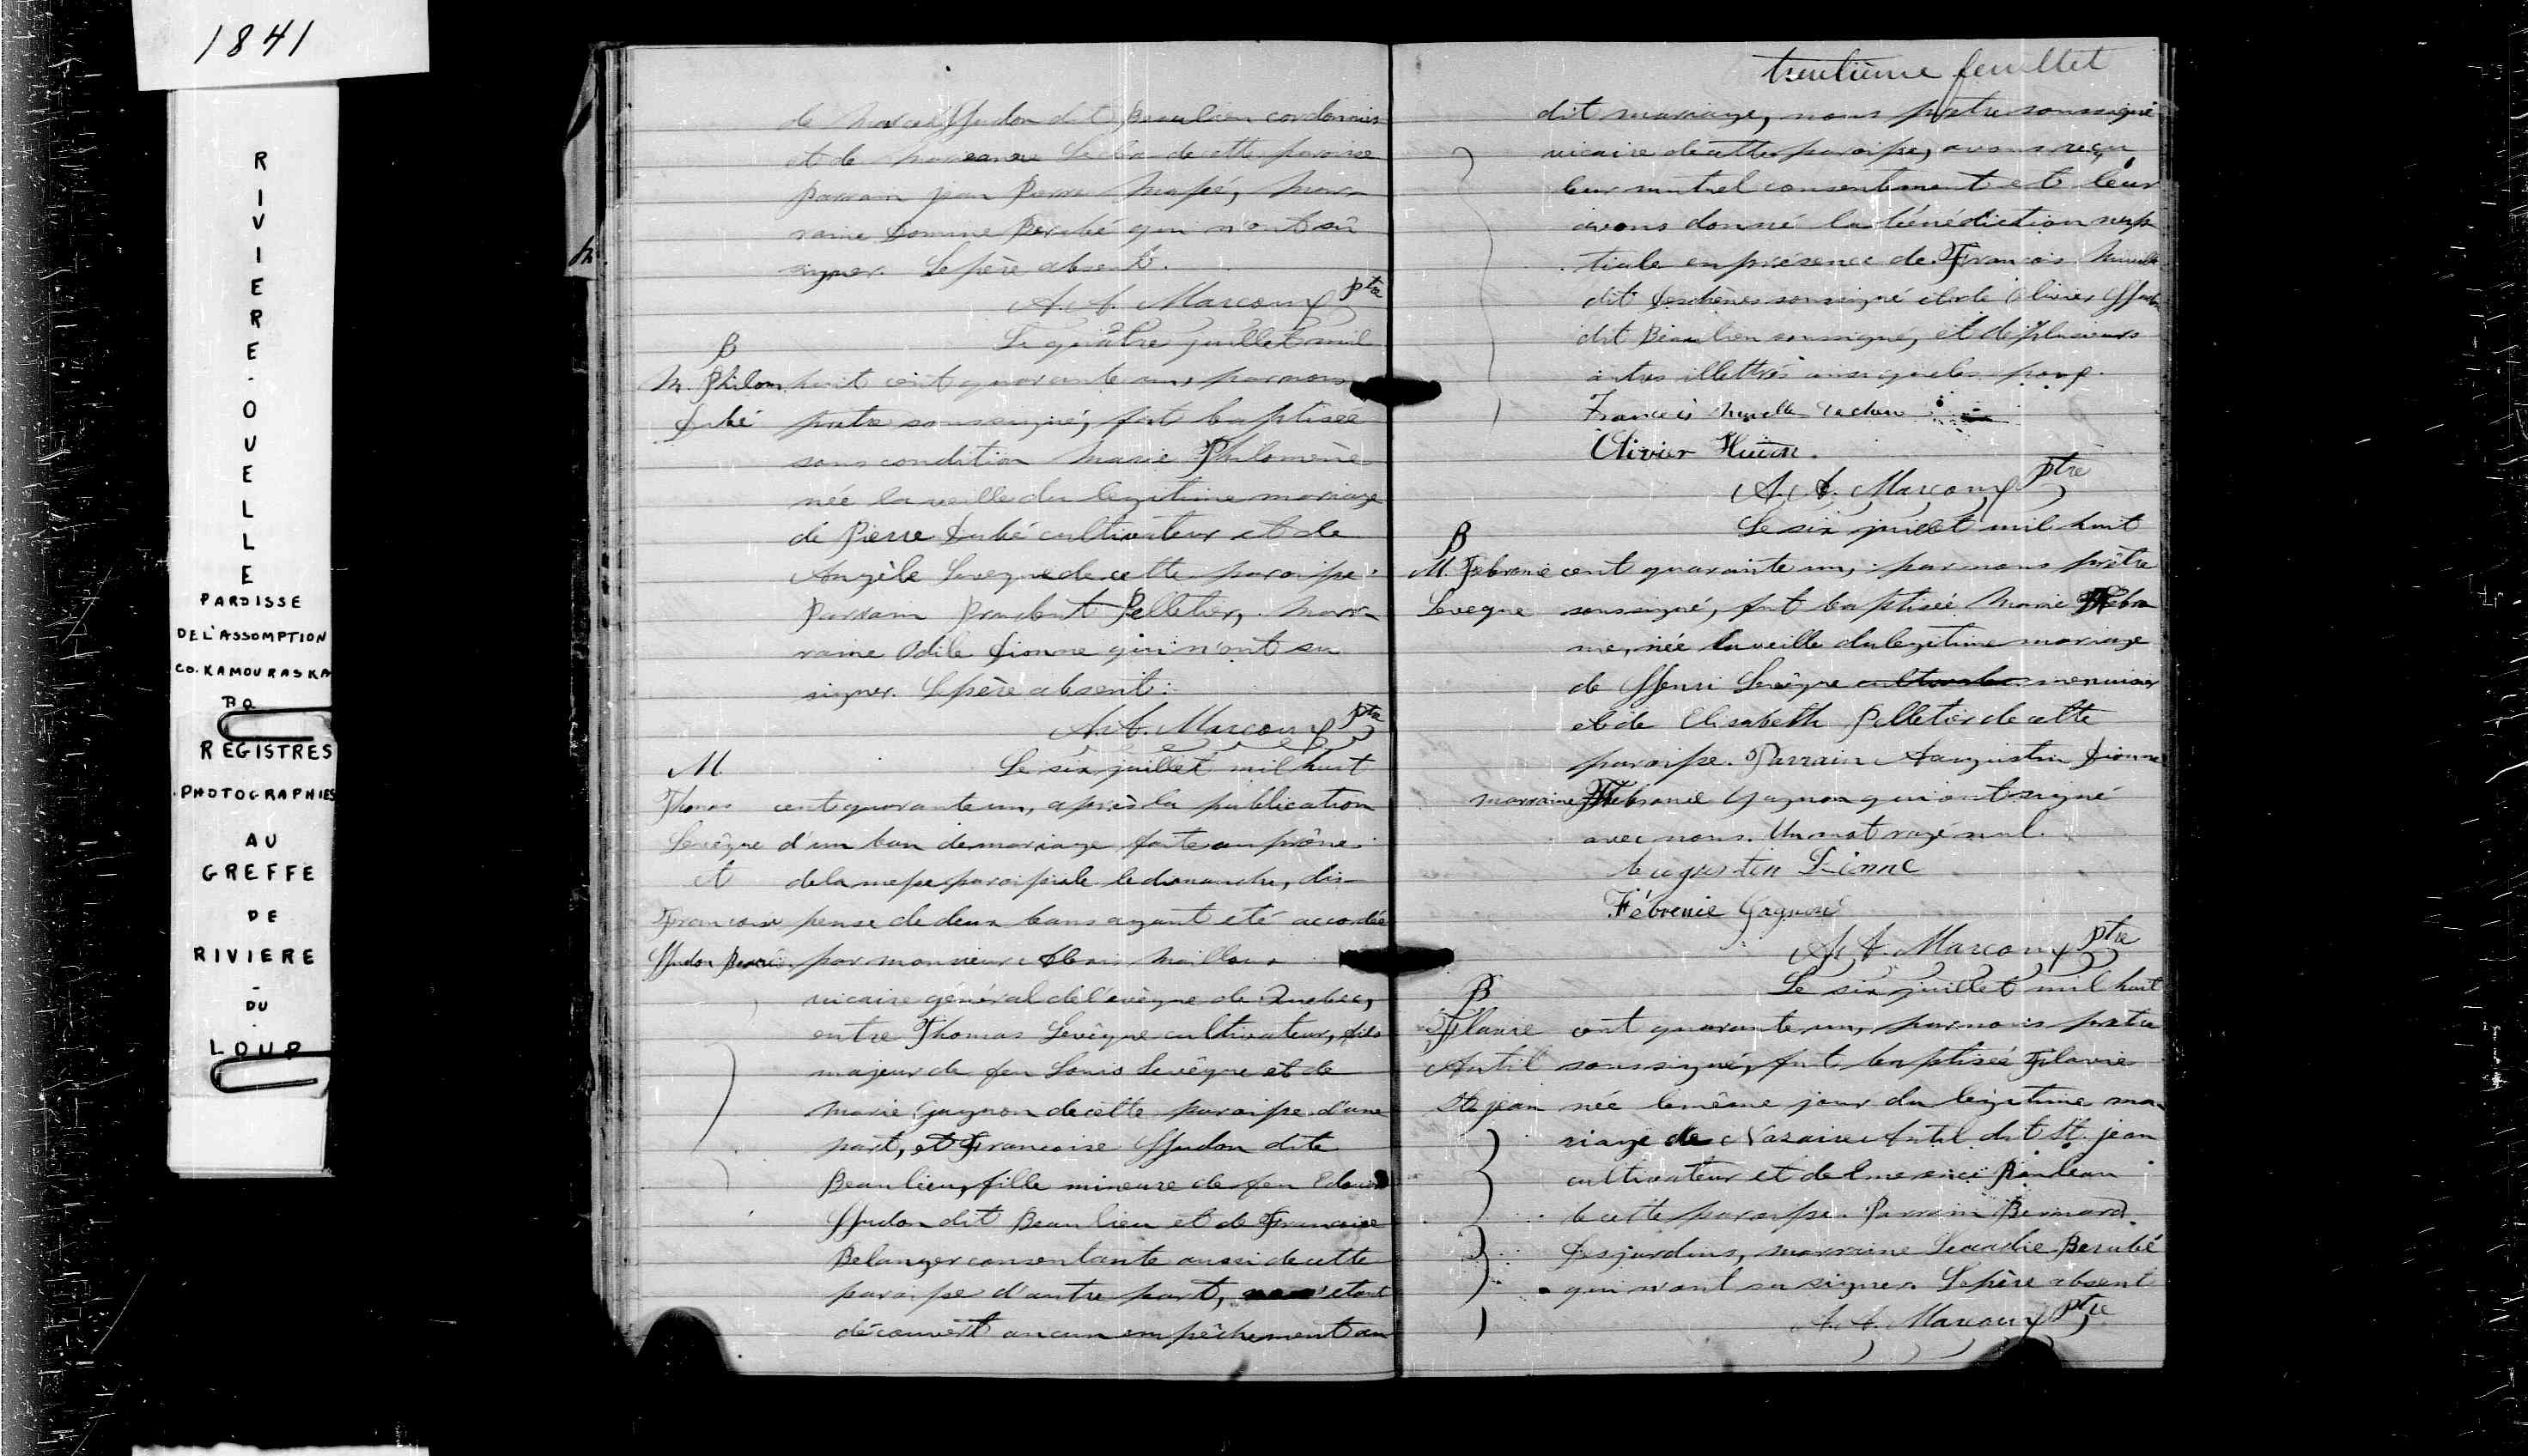 1841
RIVIERE-OUELLE
PAROISSE
DE L'ASSOMPTION
CO. KAMOURASKA
PQ
REGISTRES
PHOTOGRAPHIES
AU
GREFFE
DE
RIVIERE
-
DU
LOUP
de Marcel Hudon dit Beaulieu cordonnier
et de de cette paroisse
Parrain jean Pierre Massé, Mar-
raine Bérubé qui n'ont sû
signer. Le père absent.
A. A. Marcoux ptre
B
M. Philom.
Dubé
Le quatre juillet mil
huit cent quarante un, par nous
prêtre soussigné, fut baptisée
sous condition Marie Philomène
née la veille du legitime mariage
de Pierre Dubé cultivateur et de
Angèle Leveque de cette paroisse.
Parrain Prudent Pelletier, Mar-
raine Odile Dionne qui n'ont su
signer. Le père absent.
A. A. Marcoux ptre
M.
Thomas
Levêque
et
Francoise
Hudon Beaulieu
Le six juillet mil huit
cent quarante un, après la publication
d'un ban de mariage faite au prône
de la messe paroissiale le dimanche, dis-
pense de deux bans ayant été accordée
par monsieur Alexis Mailloux
vicaire général de l'évêque de Quebec,
entre Thomas Levêque cultivateur, fils
majeur de feu Louis Levêque et de
Marie Gagnon de cette paroisse d'une
part, et Francoise Hudon dite
Beaulieu, fille mineure de feu Edouard
Hudon dit Beaulieu et de Francoise
Belanger consentante aussi de cette
paroisse d'autre part, etant
découvert aucun empêchement au
trentième feuillet
dit mariage, nous prêtre soussigné
vicaire de cette paroisse, avons reçu
leur mutuel consentement et leur
avons donné la bénédiction nup-
tiale en présence de François Miville
dit Deschênes soussigné et de Olivier Hudon
dit Beaulieu soussigné, et de plusieurs
autres illettrés ainsi que les
Francois Miville
Olivier Hudon.
A. A. Marcoux ptre
B
M. Febronie
Leveque
Le six juillet mil huit
cent quarante un, par nous prêtre
soussigné, fut baptisée Marie Febro
nie, née la veille du legitime mariage
de Henri Levêque cultivateur menuisier
et de Elisabeth Pelletier de cette
paroisse. Parrain Augustin Dionne
marraine Febronie Gagnon qui ont signé
avec nous. Un mot rayé nul.
Augustin Dionne
Fébronie Gagnon
A. A. Marcoux ptre
B
Flavie
Autil
St jean
Le six juillet mil huit
cent quarante un, par nous prêtre
soussigné, fut baptisée Flavie
née le même jour du legitime ma-
riage de Nazaire Autil dit St. jean
cultivateur et de Emerence Rouleau
de cette paroisse. Parrain Bernard
Desjardins, marraine Leocadie Berubé
qui n'ont su signer. Le père absent
A. A. Marcoux ptre